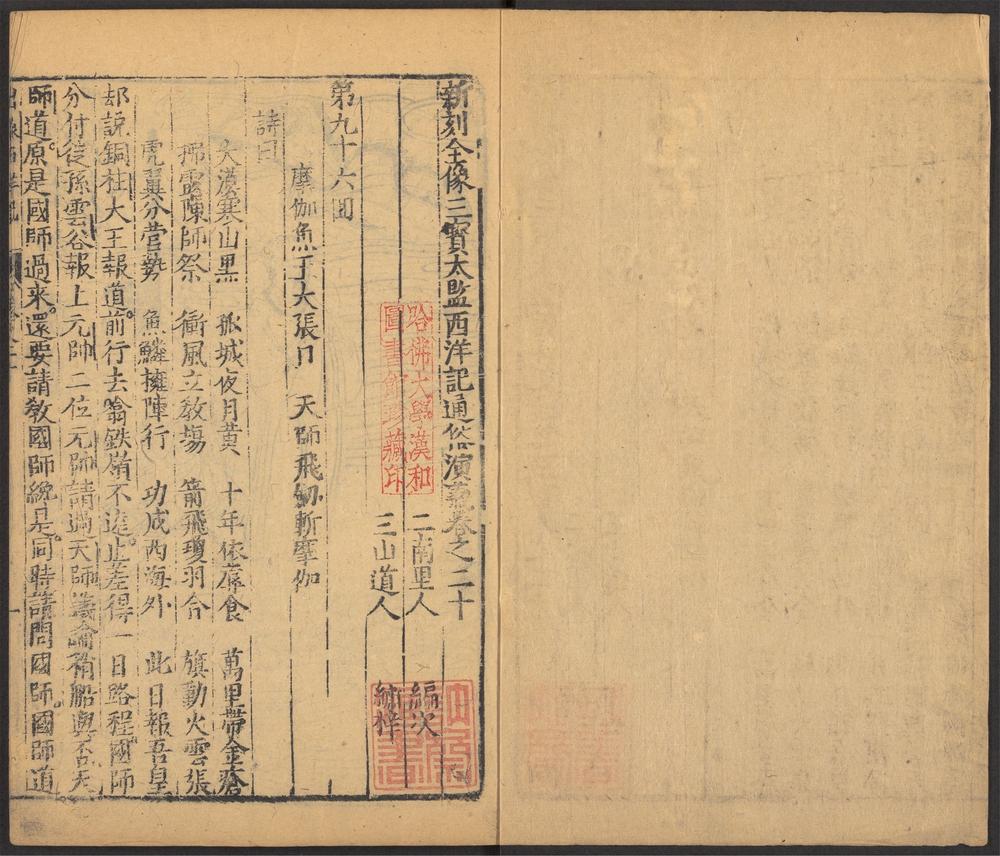 新刻全像三寳太監西洋記通俗演義卷之二十
二南里人 編次
三山道人 綉梓
哈佛大學漢和
圖書館珍藏印
第九十六回
摩伽魚王大張口 天師飛劒斬摩伽
詩曰
大漠寒山黑 孤城夜月黄 十年依蓐食 萬里帶金瘡
拂雲陳師祭 衝風立教塲 箭飛瓊羽合 旗動火雲張
虎翼分營勢 魚鱗擁陣行 功成西海外 此日報吾皇
却説銅柱大王報道前行去翕鉄嶺不遠止差得一日路程國師
分付徒孫雲谷報上元帥二位元帥請過天師議論有船與否天
師道原是國師過來還要請教國師纔是同時請問國師國師道